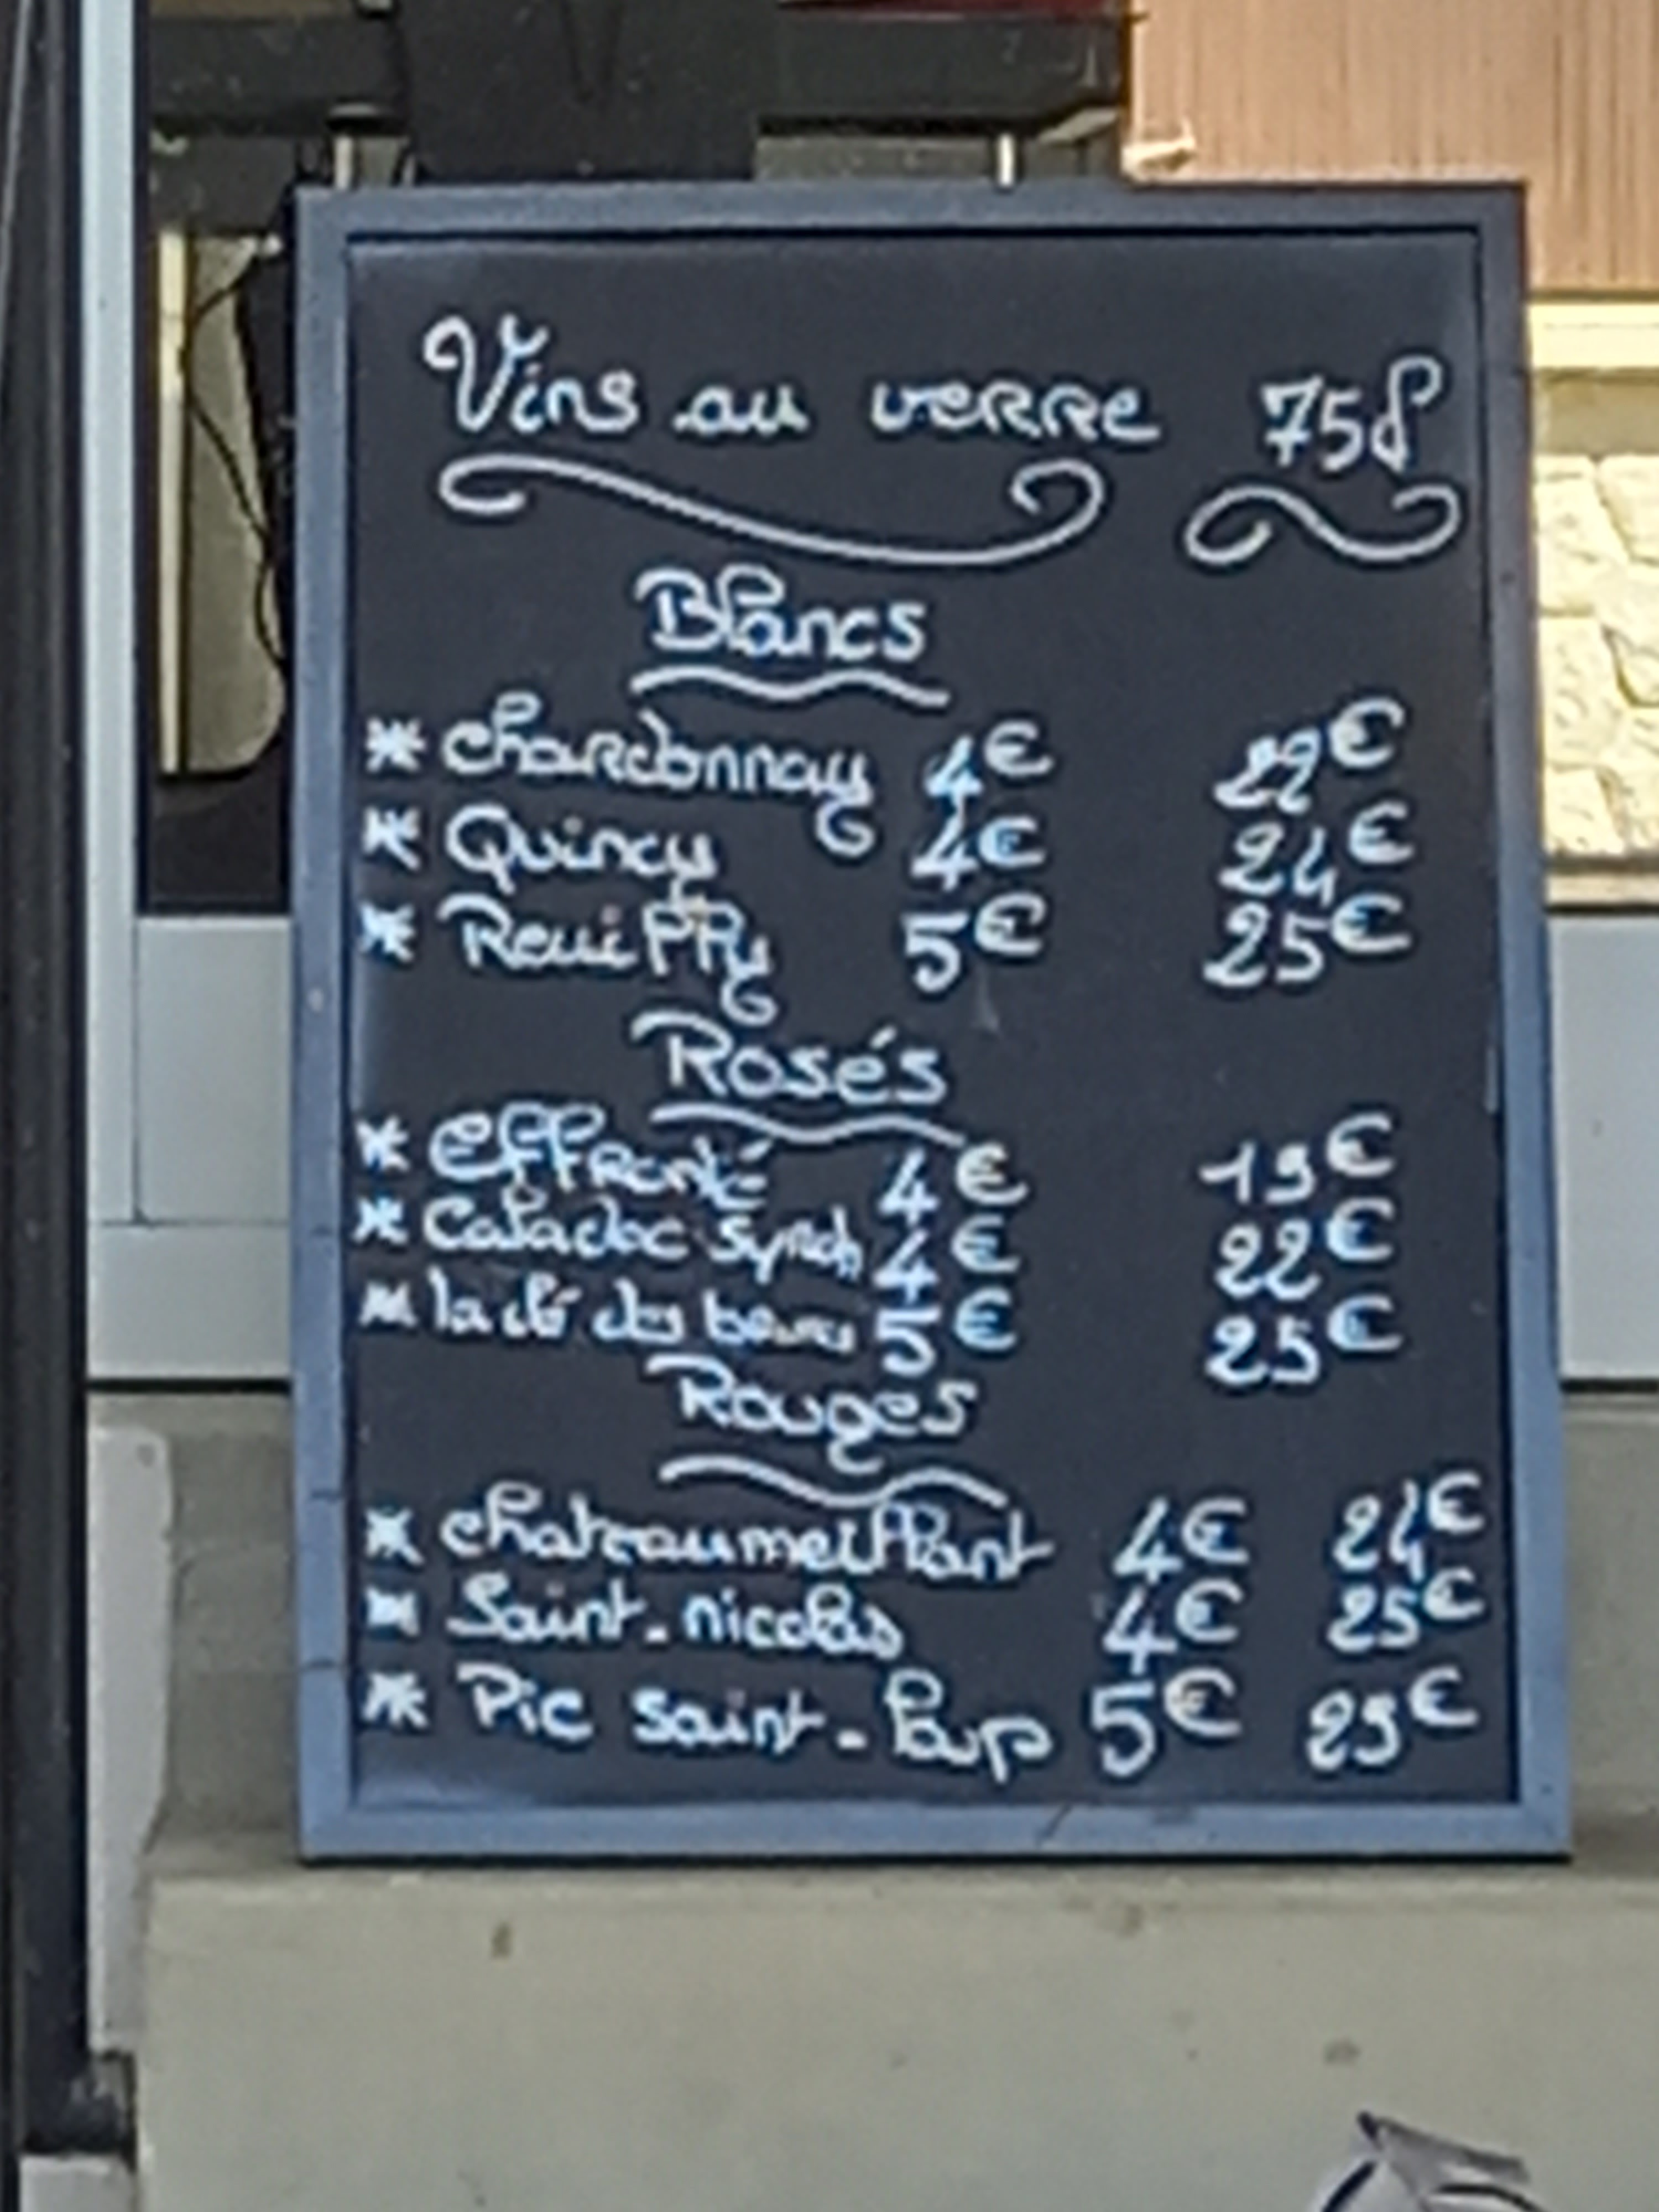 Vins au verre 75cl
Blancs
* Chardonnay 4€ 22€
* Quincy 4€ 24€
* Reuilly 5€ 25€
Rosés
* Effronté 4€ 19€
* Caladoc Syrah 4€ 22€
* la clé des 5€ 25€
Rouges
* Chateaumeillant 4€ 24€
* Saint-nicolas 4€ 25€
* Pic saint-Loup 5€ 29€